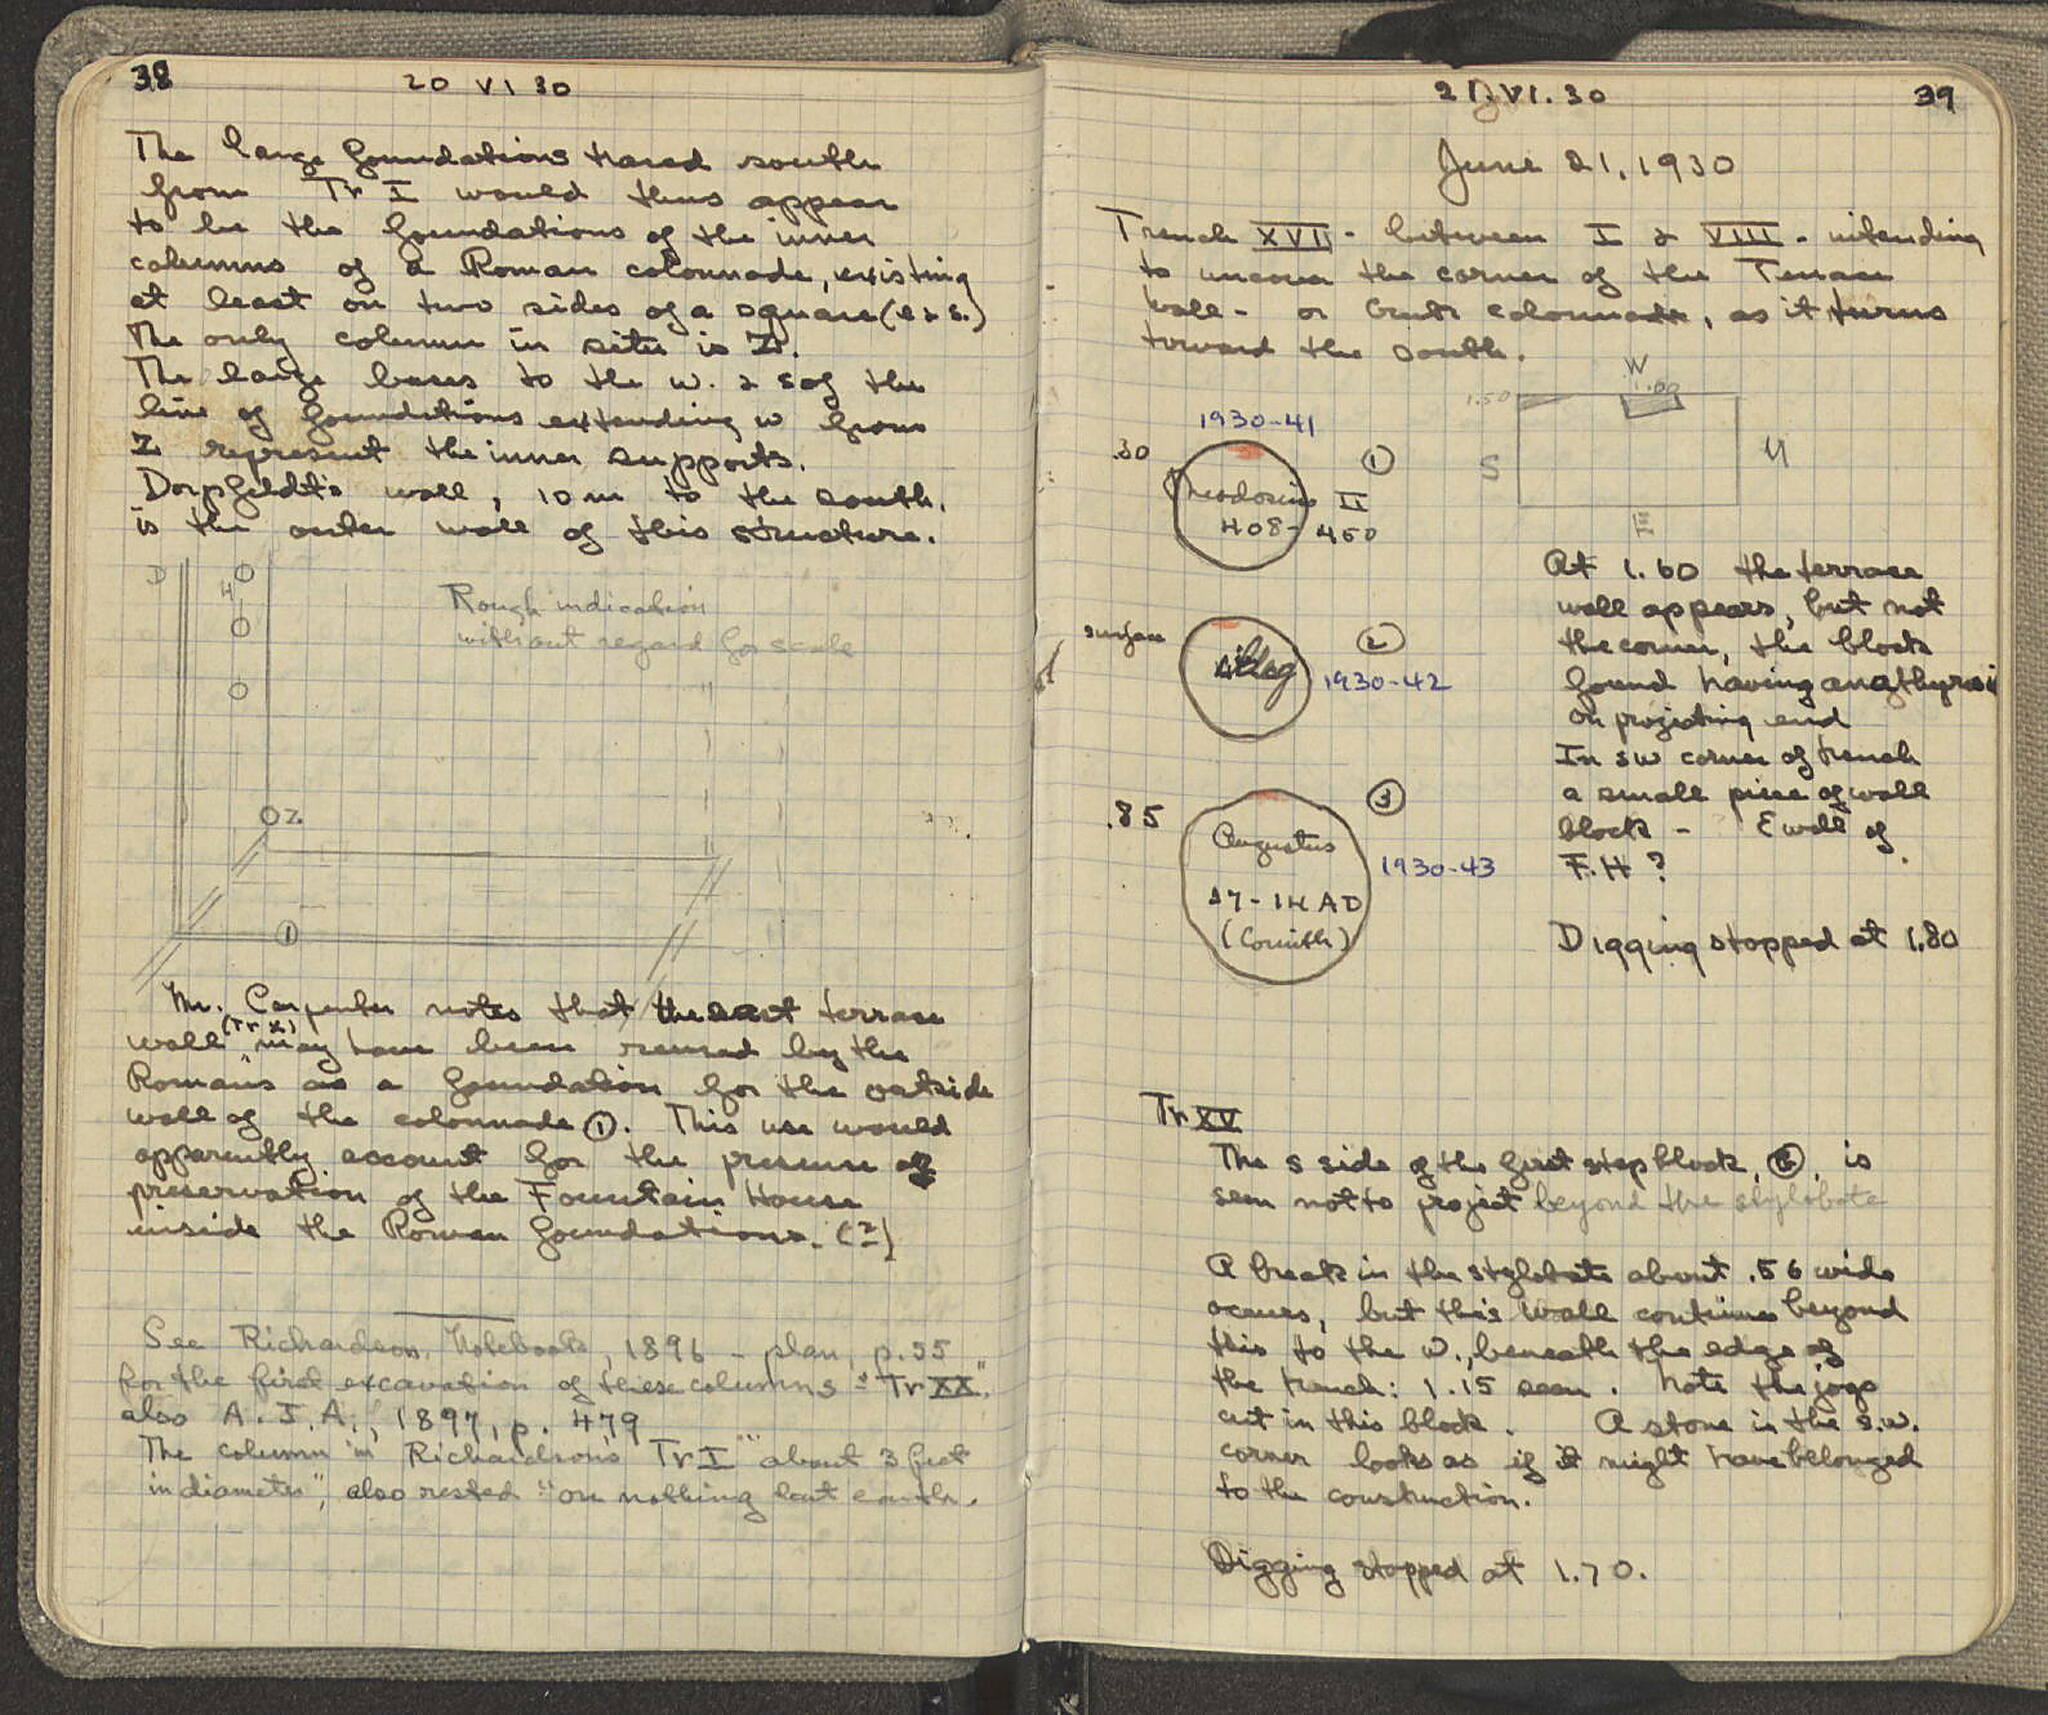 38
20 VI 30
The large foundations traced south
from Tr I would thus appear
to be the foundations of the inner
columns of a Roman colonnade, existing
at least on two sides of a square (e & s.)
The only column in situ is Z.
The large bases to the w. & s of the
line of foundations extending w from
Z represent the inner supports.
Dorpfeldt's wall, 10 m to the south,
is the outer wall of this structure.
D
4
Rough indication
without regard for scale
Z.
1
Mr. Carpenter notes that the east terrace
(Tr X)
wall, may have been reused by the
Romans as a foundation for the outside
wall of the colonnade ①. This use would
apparently account for the presence of
preservation of the Fountain House
inside the Roman foundations. (?)
See Richardson, Notebook, 1896 – plan, p. 55
for the first excavation of these columns = "Tr XX."
also A.J.A., 1897, p. 479
The column in Richardson's Tr I "about 3 feet
in diameter", also rested "on nothing but earth.
21.VI.30
39
June 21, 1930
Trench XVI - between I & VIII - intending
to uncover the corner of the Terrace
wall - or colonnade, as it turns
toward the south.
W
1.00
1.50
S
N
E
1930-41
.30
①
Theodosius II
408-450
surface
②
illeg
1930-42
.85
③
Augustus
27-14 AD
(Corinth)
1930-43
At 1.60 the terrace
wall appears, but not
the corner, the block
found having anathyrosis
on projecting end
In sw corner of trench
a small piece of wall
block - E wall of
F.H?
Digging stopped at 1.80
Tr XV
The s side of the first step block, is
seen not to project beyond the stylobate
A break in the stylobate about .56 wide
occurs, but this wall continues beyond
this to the w., beneath the edge of
the trench: 1.15 seen. Note the jogs
cut in this block. A stone in the s.w.
corner looks as if it might have belonged
to the construction.
Digging stopped at 1.70.